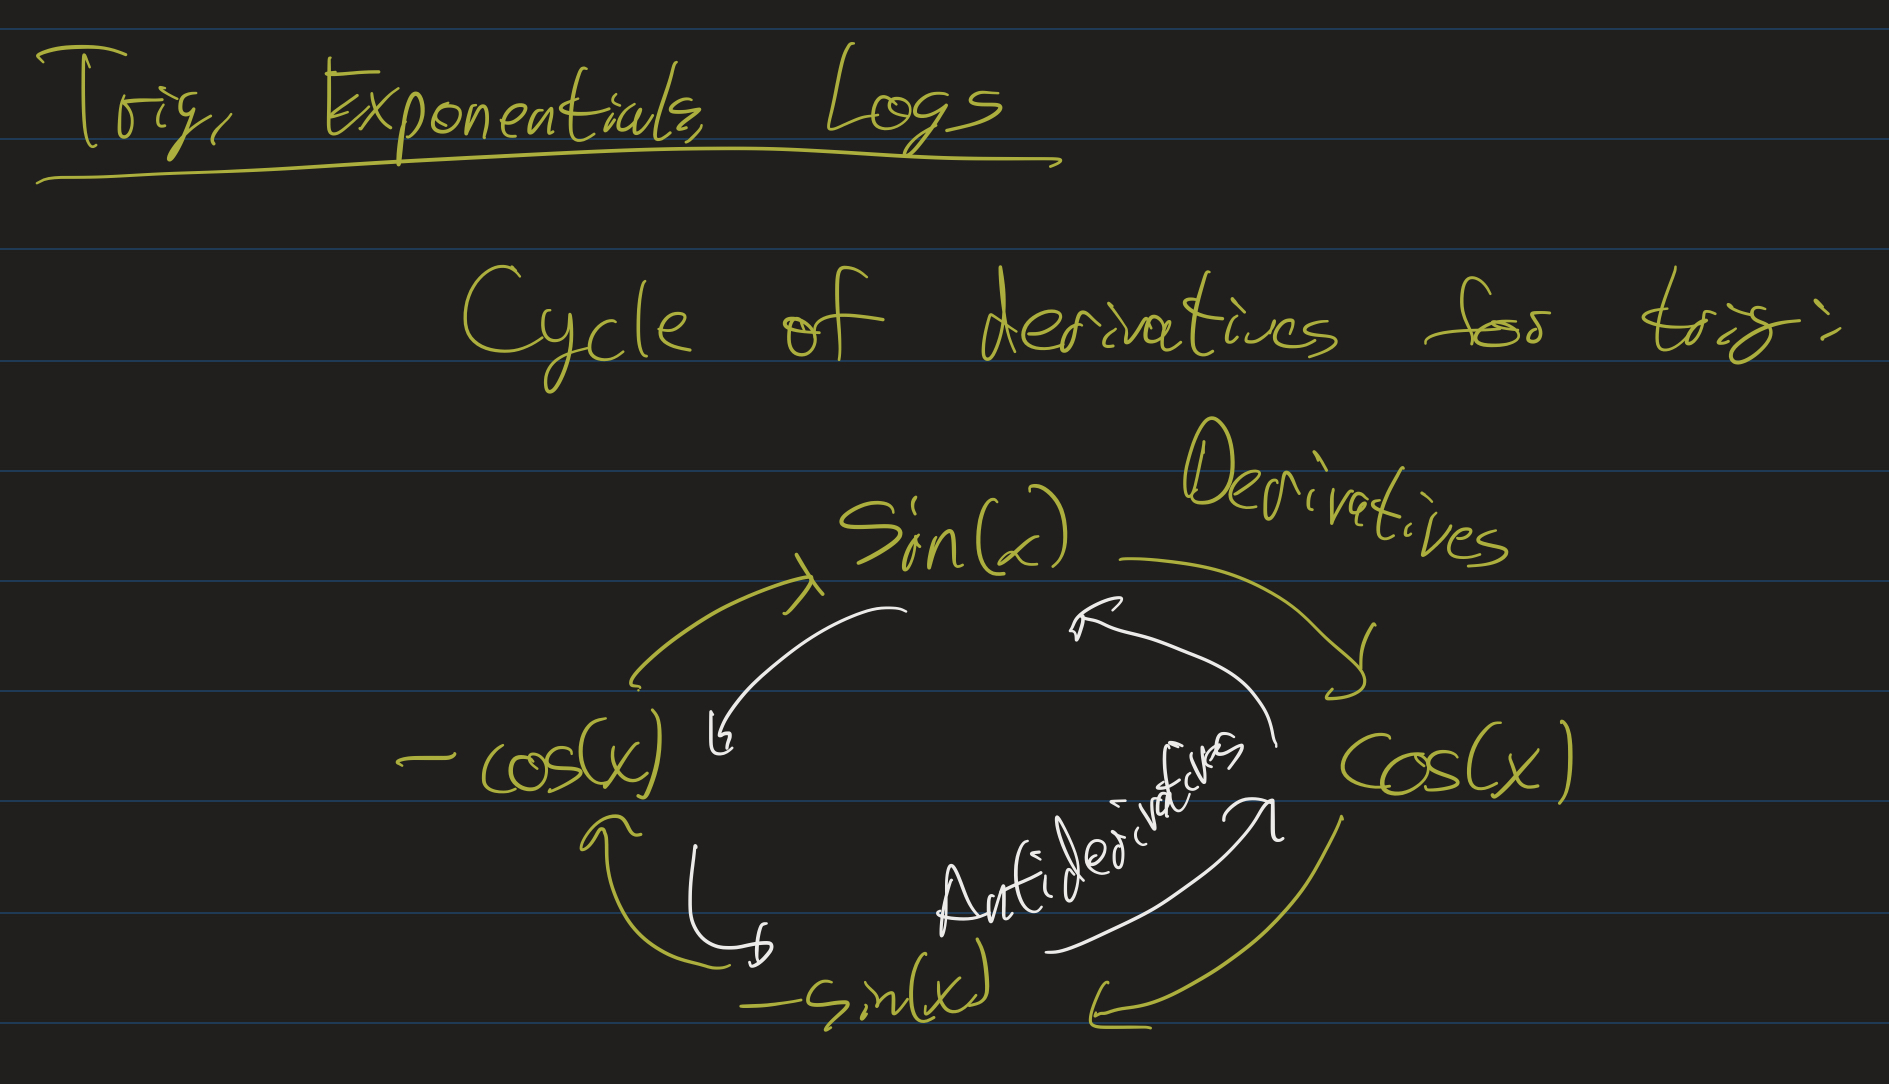 Trig, Exponentials, Logs
Cycle of derivatives for trig:
Derivatives
Sin(x)
-cos(x)
Cos(x)
Antiderivatives
-sin(x)